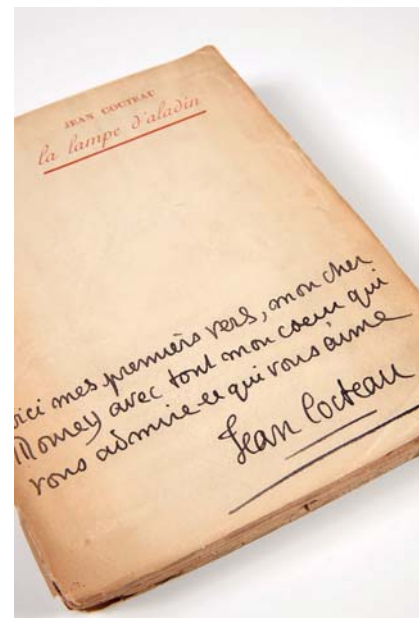 JEAN COCTEAU
la lampe d'aladin
oici mes premiers vers, mon cher
Mourey avec tout mon coeur qui
vous admire et qui vous aime
Jean Cocteau